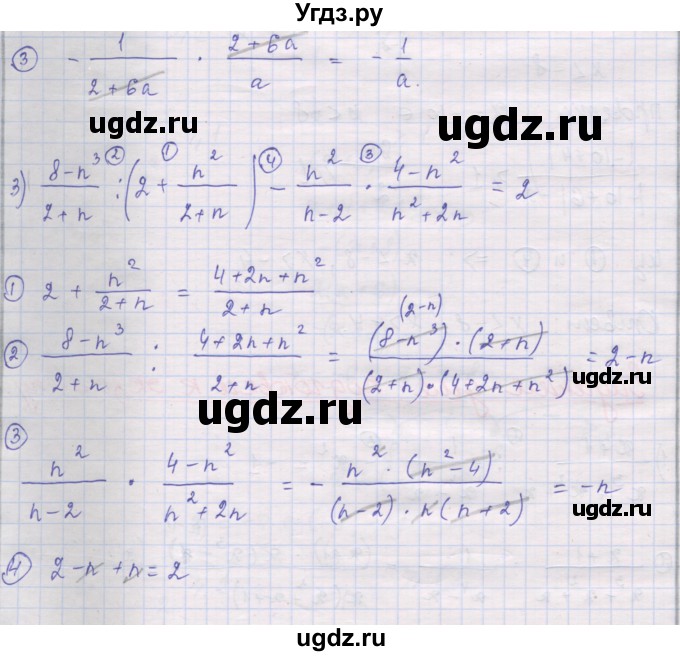 Угдз.ру
③ - 1/(2+6a) · (2+6a)/a = - 1/a.
ugdz.ru
ugdz.ru
3) (8-n³)/(2+n) ②: (2 +① n²/(2+n)) ④- n²/(n-2) ③· (4-n²)/(n²+2n) = 2
① 2 + n²/(2+n) = (4+2n+n²)/(2+n)
(2-n)
② (8-n³)/(2+n) : (4+2n+n²)/(2+n) = (8-n³)·(2+n)/(2+n)·(4+2n+n²) = 2-n
ugdz.ru
ugdz.ru
③ n²/(n-2) · (4-n²)/(n²+2n) = - n²·(n²-4)/(n-2)·n(n+2) = -n
ugdz.ru
④ 2-n+n=2
ugdz.ru
ugdz.ru